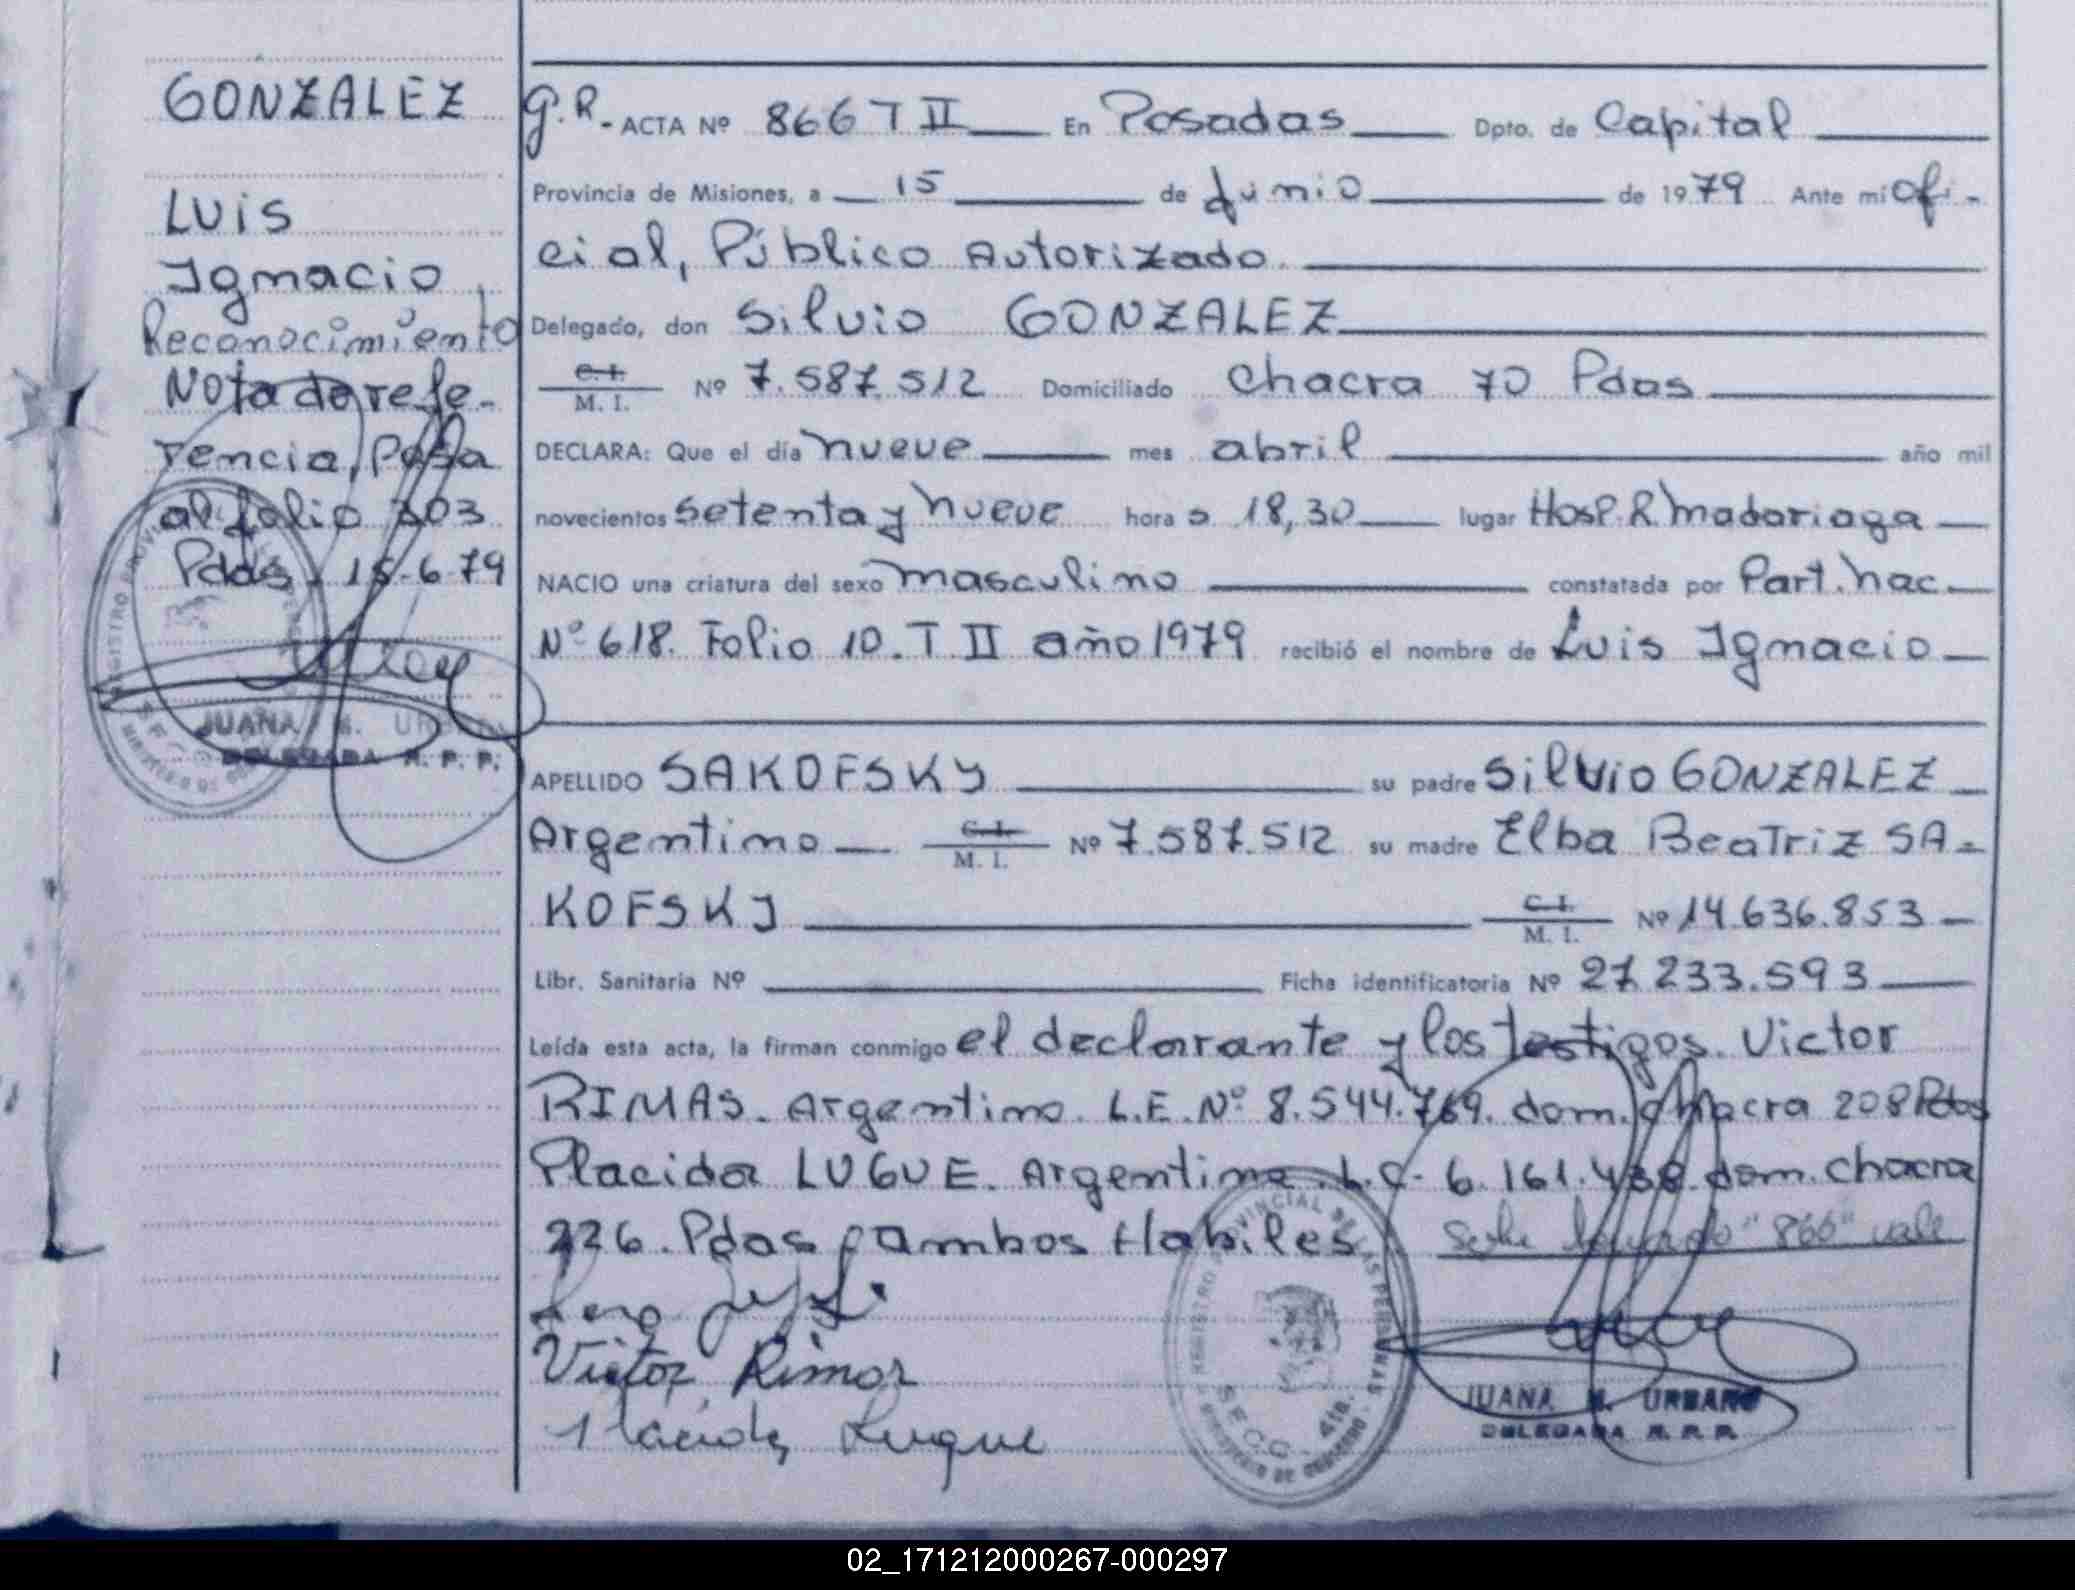 GONZALEZ
LUis
Ignacio
Reconocimiento
Nota de refe-
rencia, Pasa
al folio 303
Pdas. 15-6-79
JUANA N. URBANO
DELEGADA R. P. P.
G.R.- ACTA Nº 866 T II En Posadas Dpto. de Capital
Provincia de Misiones, a 15 de junio de 1979 Ante mi ofi-
cial, Público Autorizado
Delegado, don Silvio GONZALEZ
C. I. M. I. Nº 7.587.512 Domiciliado Chacra 70 Pdas
DECLARA: Que el día nueve mes abril año mil
novecientos setenta y nueve hora s 18,30 lugar Hosp. R Madariaga
NACIO una criatura del sexo masculino constatada por Part. nac
Nº 618. Folio 10. T II año 1979 recibió el nombre de Luis Ignacio
APELLIDO SAKOFSKY su padre Silvio GONZALEZ
Argentino C. I. M. I. Nº 7.587.512 su madre Elba Beatriz SA-
KOFSKY C. I. M. I. Nº 14.636.853
Libr. Sanitaria Nº Ficha identificatoria Nº 27.233.593
Leída esta acta, la firman conmigo el declarante y los testigos. Victor
RIMAS. Argentino. L.E. Nº 8.544.769. dom. Chacra 208 Pdas
Placida LUGUE. Argentina. L.C. 6.161.438. dom. Chacra
226. Pdas ambos Habiles
"866" vale
Victor Rimas
Placida Luque
REGISTRO PROVINCIAL DE LAS PERSONAS
SECC. 4ta.
MINISTERIO DE GOBIERNO
JUANA N. URBANO
DELEGADA R. P. P.
02_171212000267-000297